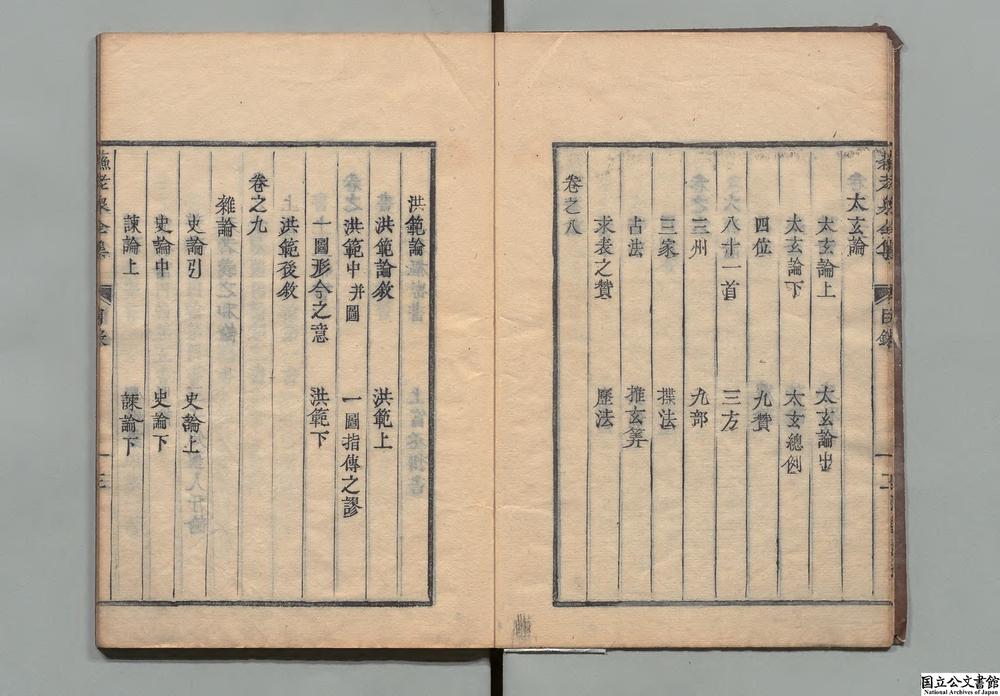 蘇老泉全集 目錄
太玄論
太玄論上 太玄論出
太玄論下 太玄總例
四位 九贊
八十一首 三方
三州 九部
三家 揲法
占法 推玄筭
求表之贊 歷法
卷之八
洪範論
洪範論敘 洪範上
洪範中并圖 一圖指傳之謬
一圖形今之意 洪範下
洪範後敘
卷之九
雜論
史論引 史論上
史論中 史論下
諫論上 諫論下
蘇老泉全集 目錄
国立公文書館
National Archives of Japan